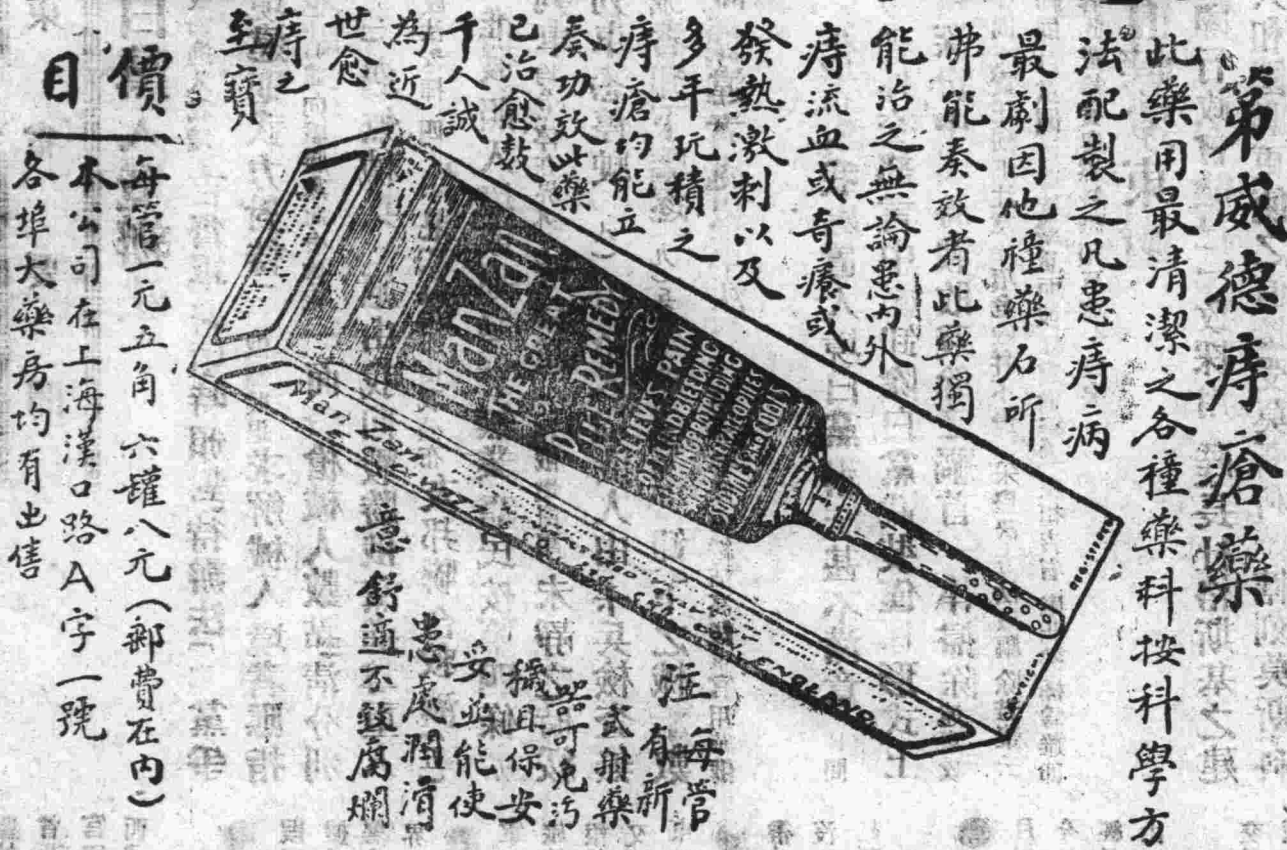 第威德痔瘡藥
此藥用最清潔之各種藥料按科學方
法配製之凡患痔病
最劇因他種藥石所
弗能奏效者此藥獨
能治之無論患內外
痔流血或奇癢或
發熱激刺以及
多年玩積之
痔瘡均能立
奏功效此藥
已治愈數
千人誠
為近
世愈
痔之
至寶
ManZan
THE GREAT
PILE REMEDY
RELIEVES PAIN
Man Zan
ENGLAND
注意
每管
有新
式射藥
器可免污
穢且保安
妥並能使
患處潤滑
舒適不致腐爛
價目
每管一元五角 六罐八元（郵費在內）
本公司在上海漢口路A字一號
各埠大藥房均有出售